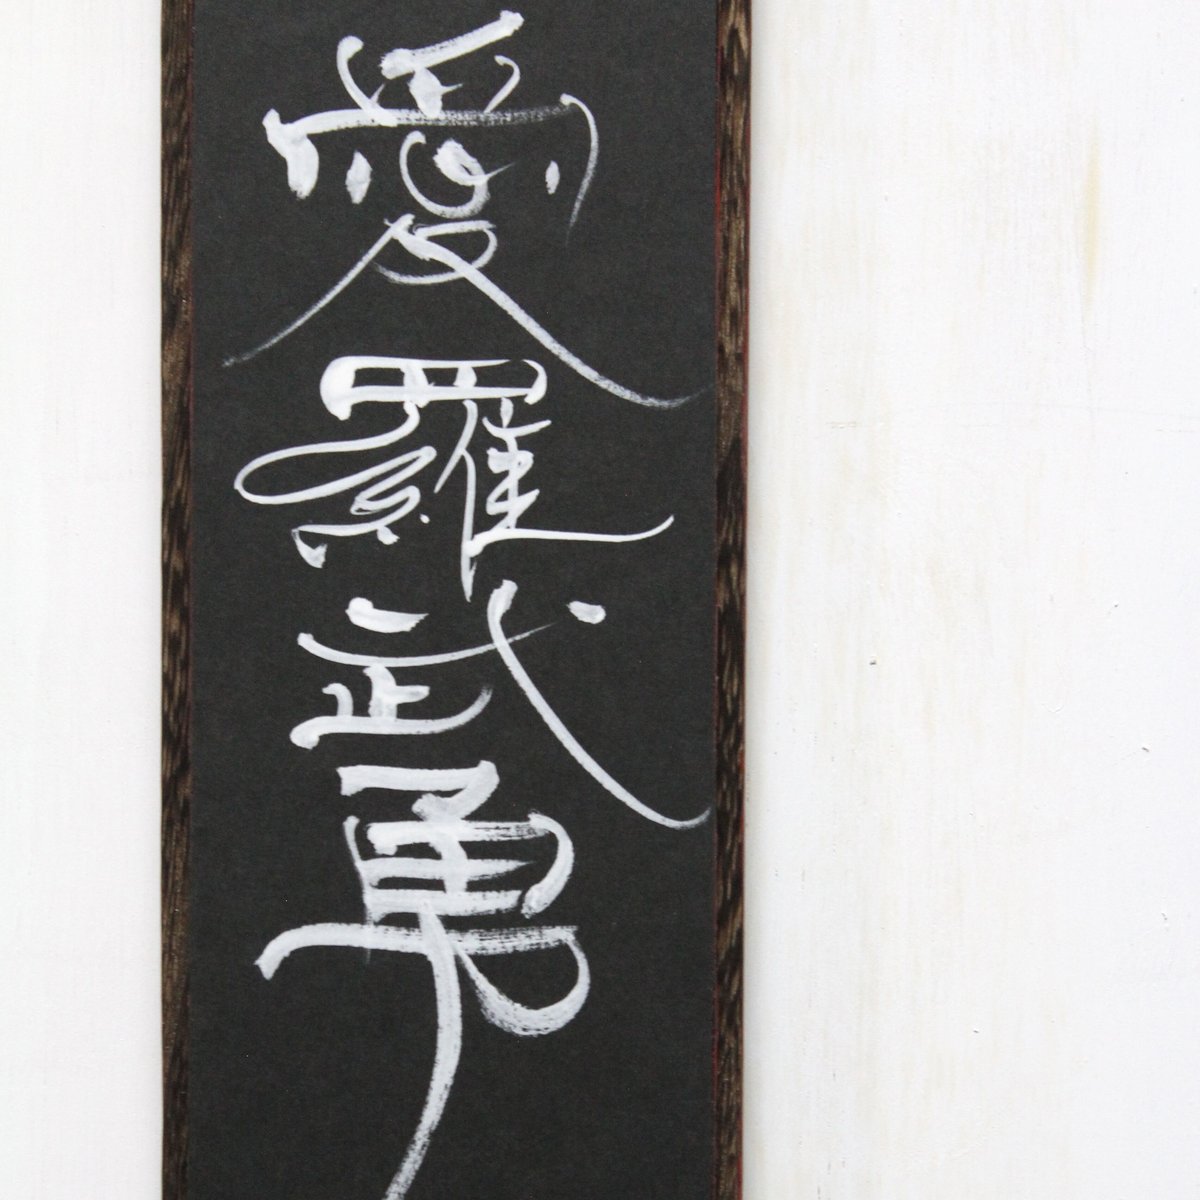 愛羅武勇